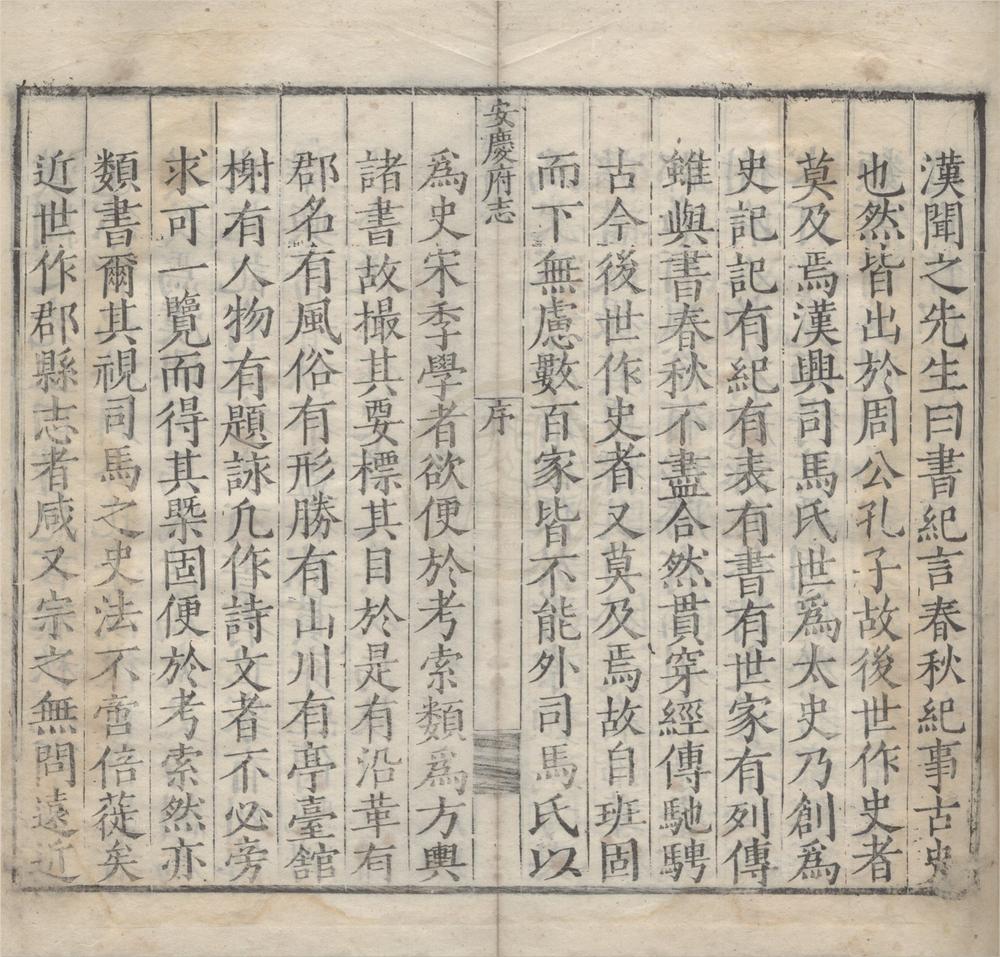 漢聞之先生曰書紀言春秋紀事古史
也然皆出於周公孔子故後世作史者
莫及焉漢興司馬氏世為太史乃創為
史記記有紀有表有書有世家有列傳
雖與書春秋不盡合然貫穿經傳馳騁
古今後世作史者又莫及焉故自班固
而下無慮數百家皆不能外司馬氏以
安慶府志
序
為史宋季學者欲便於考索類為方輿
諸書故撮其要標其目於是有沿革有
郡名有風俗有形勝有山川有亭臺館
榭有人物有題詠凡作詩文者不必旁
求可一覽而得其槩固便於考索然亦
類書爾其視司馬之史法不啻倍蓰矣
近世作郡縣志者咸又宗之無間遠近